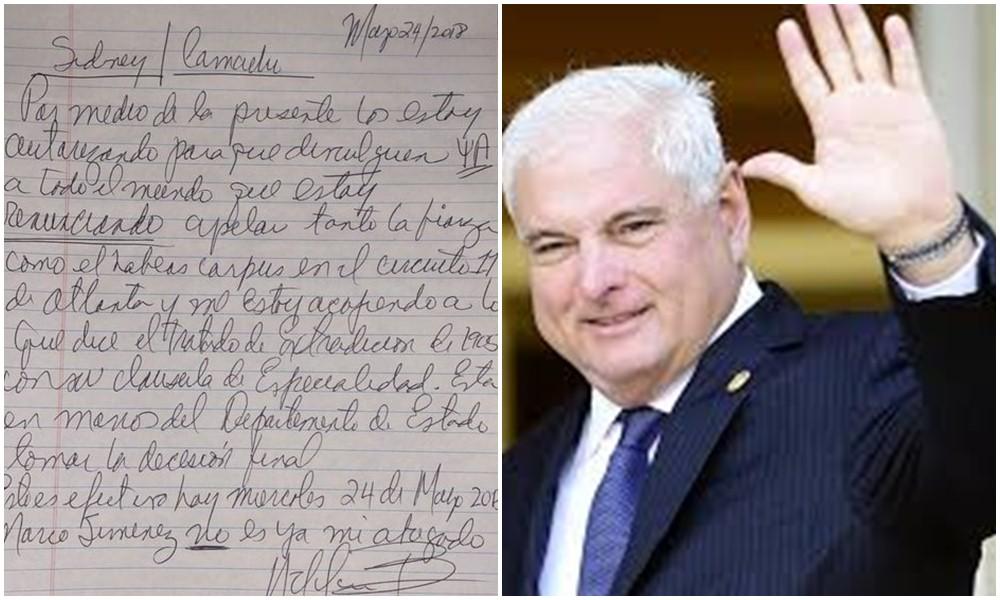 Mayo 24/2018
Sidney / Camachu
Por medio de la presente los estoy
autorizando para que divulguen YA
a todo el mundo que estoy
renunciando apelar tanto la fianza
como el habeas corpus en el circuito 11
de atlanta y me estoy acogiendo a lo
que dice el tratado de extradicion de 1905
con su clausula de Especialidad. Esta
en manos del Departamento de Estado
tomar la decesión final
efectivo hoy miercoles 24 de Mayo 201
Marco Jimenez no es ya mi abogado